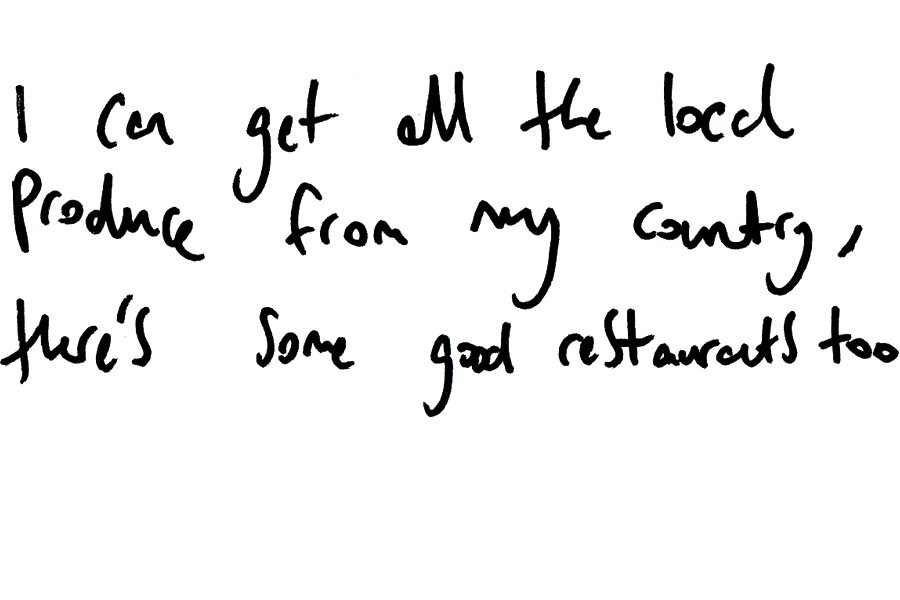 I can get all the local
produce from my country,
there's some good restaurants too